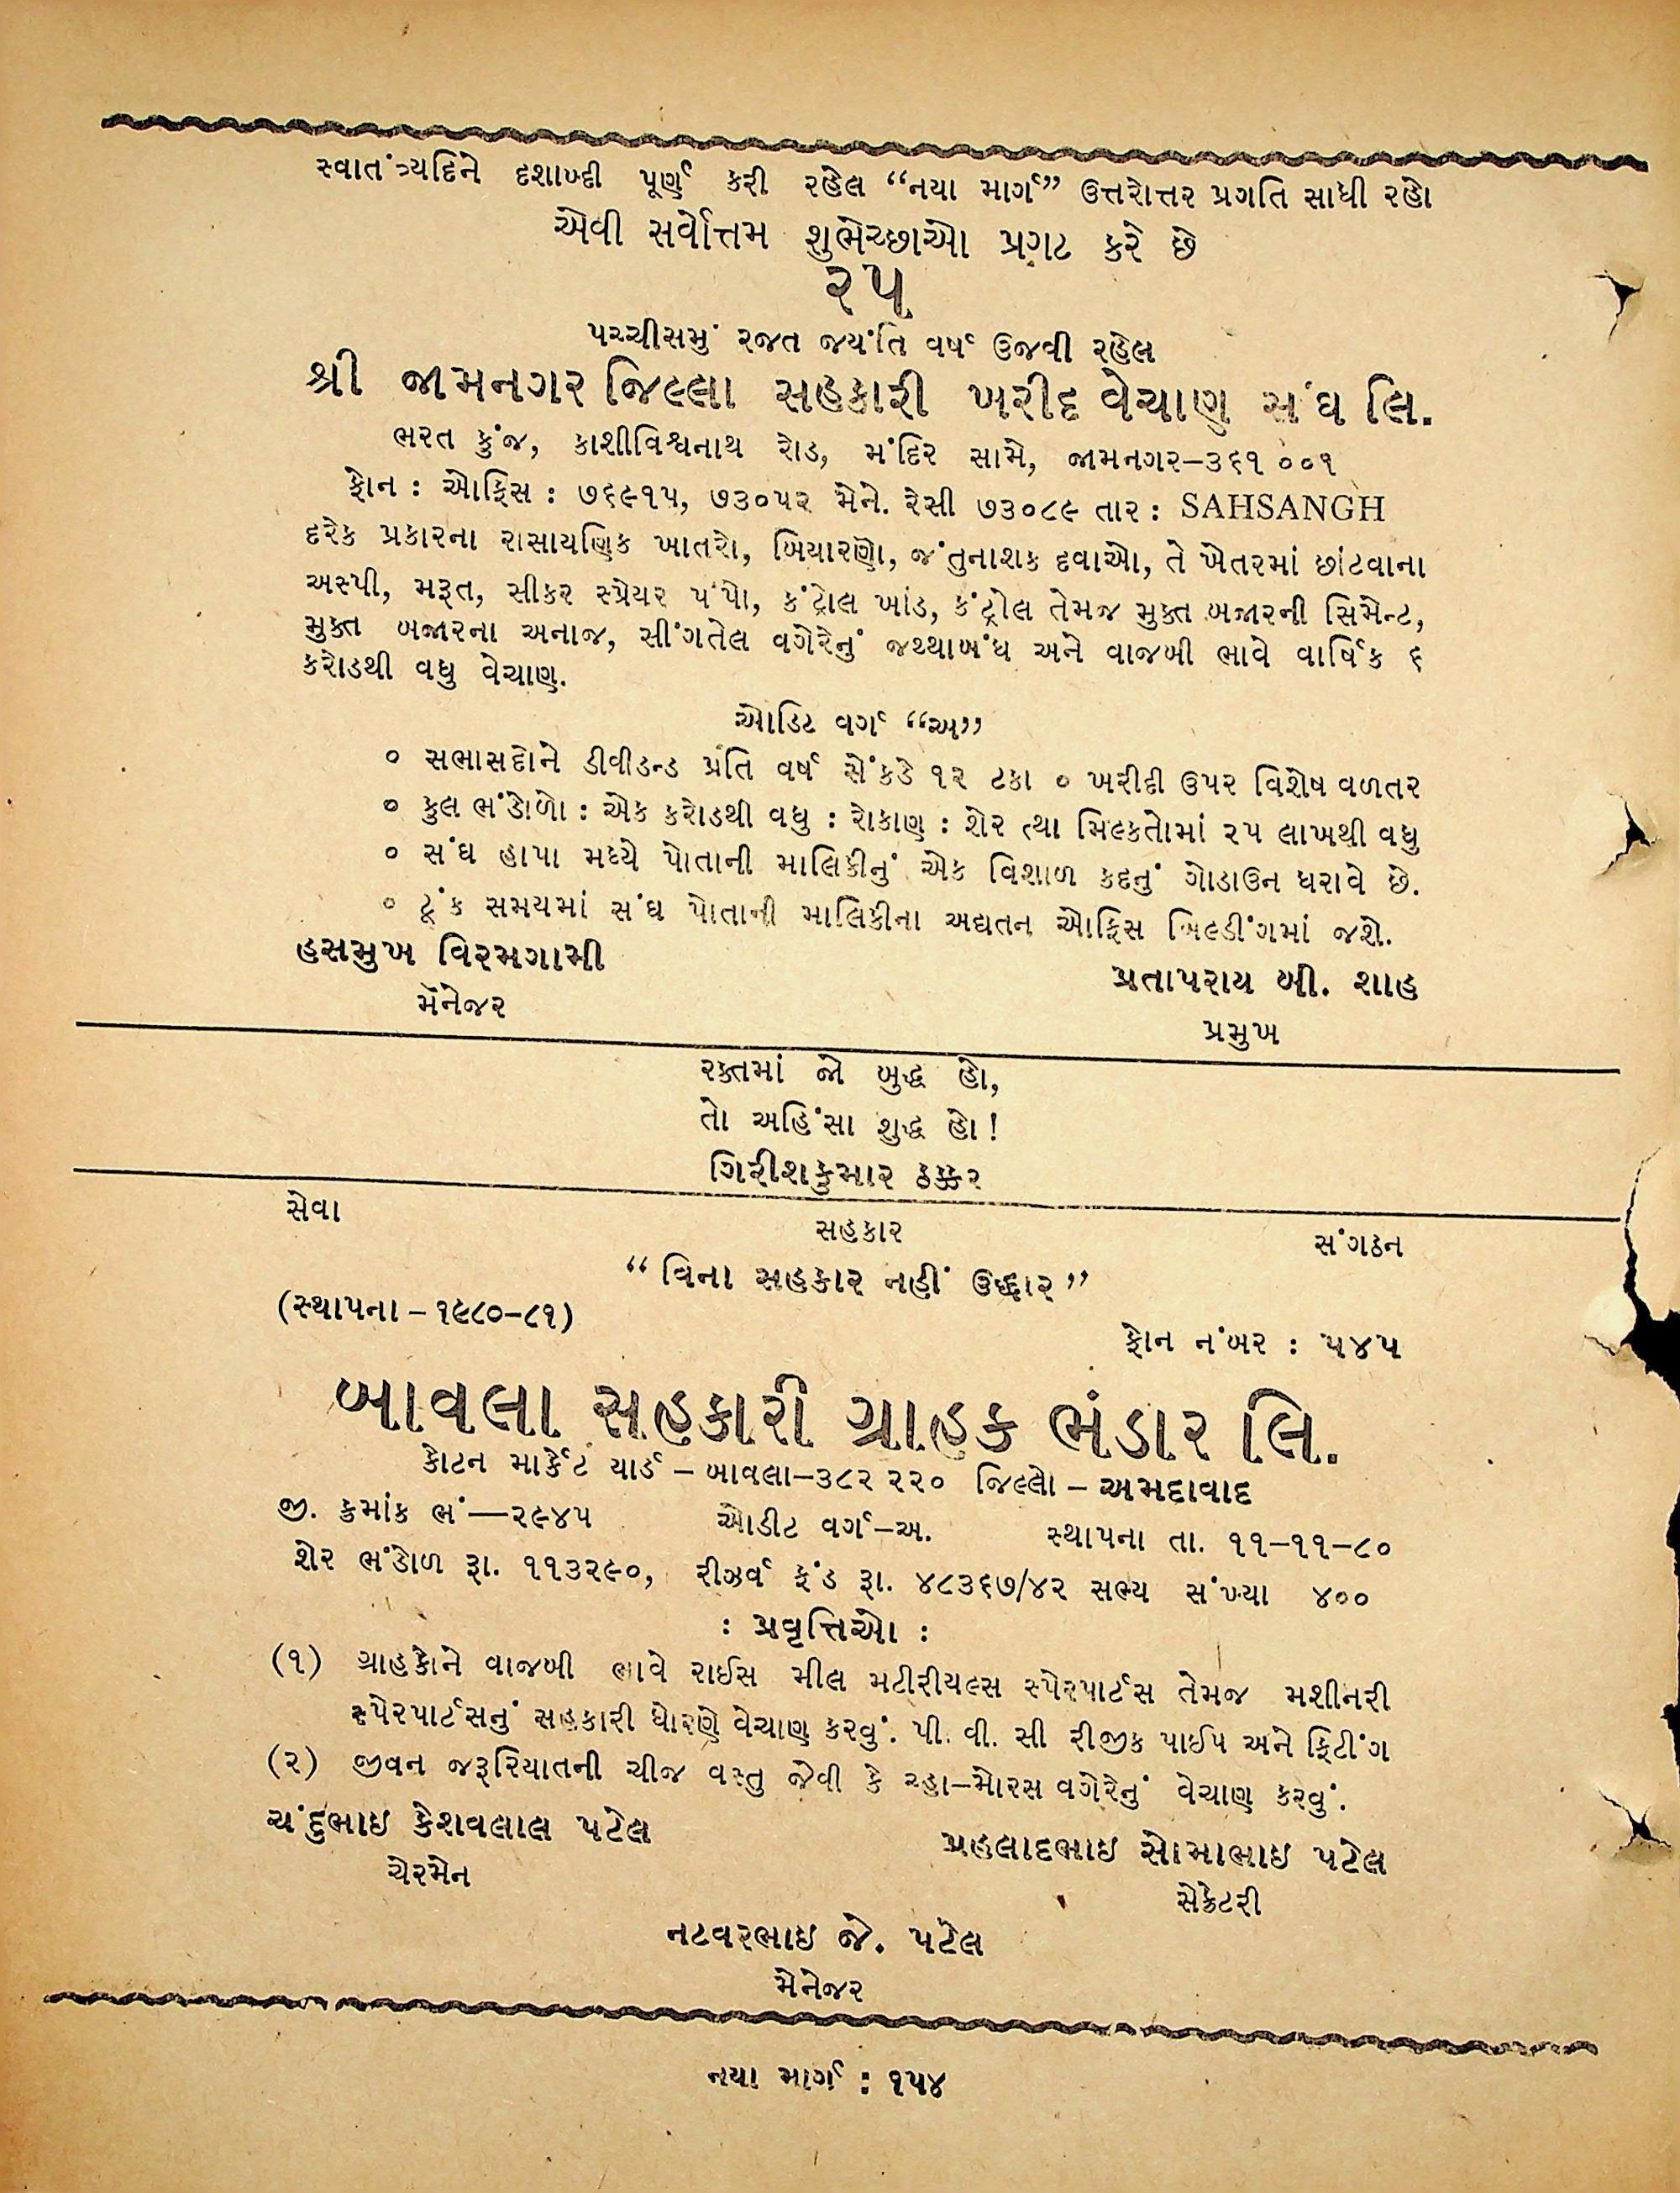 સ્વાતંત્ર્યદિને દશાબ્દી પૂર્ણ કરી રહેલ “નયા માર્ગ” ઉત્તરોત્તર પ્રગતિ સાધી રહો
એવી સર્વોત્તમ શુભેચ્છાઓ પ્રગટ કરે છે
૨૫
પચ્ચીસમું રજત જયંતિ વર્ષ ઉજવી રહેલ
શ્રી જામનગર જિલ્લા સહકારી ખરીદ વેચાણ સંઘ લિ.
ભરત કુંજ, કાશીવિશ્વનાથ રોડ, મંદિર સામે, જામનગર–૩૬૧ ૦૦૧
ફોન : ઓફિસ : ૭૬૯૧૫, ૭૩૦૫૨ મેને. રેસી ૭૩૦૮૯ તાર : SAHSANGH
દરેક પ્રકારના રાસાયણિક ખાતરો, બિયારણો, જંતુનાશક દવાઓ, તે ખેતરમાં છાંટવાના
અસ્પી, મરૂત, સીકર સ્પ્રેયર પંપો, કંટ્રોલ ખાંડ, કંટ્રોલ તેમજ મુક્ત બજારની સિમેન્ટ,
મુક્ત બજારના અનાજ, સીંગતેલ વગેરેનું જથ્થાબંધ અને વાજબી ભાવે વાર્ષિક ૬
કરોડથી વધુ વેચાણ.
ઓડિટ વર્ગ “અ”
૦ સભાસદોને ડીવીડન્ડ પ્રતિ વર્ષ સેંકડે ૧૨ ટકા ૦ ખરીદી ઉપર વિશેષ વળતર
૦ કુલ ભંડોળો : એક કરોડથી વધુ : રોકાણ : શેર ત્થા મિલ્કતોમાં ૨૫ લાખથી વધુ
૦ સંઘ હાપા મધ્યે પોતાની માલિકીનું એક વિશાળ કદનું ગોડાઉન ધરાવે છે.
૦ ટૂંક સમયમાં સંઘ પોતાની માલિકીના અદ્યતન ઓફિસ બિલ્ડીંગમાં જશે.
હસમુખ વિરમગામી
મૅનેજર
પ્રતાપરાય બી. શાહ
પ્રમુખ
રક્તમાં જો બુદ્ધ હો,
તો અહિંસા શુદ્ધ હો!
ગિરીશકુમાર ઠક્કર
સેવા સહકાર સંગઠન
“વિના સહકાર નહીં ઉદ્ધાર”
(સ્થાપના – ૧૯૮૦–૮૧)
ફોન નંબર : ૫૪૫
બાવલા સહકારી ગ્રાહક ભંડાર લિ.
કોટન માર્કેટ યાર્ડ – બાવલા–૩૮૨ ૨૨૦ જિલ્લો – અમદાવાદ
જી. ક્રમાંક ભં—૨૯૪૫ ઓડીટ વર્ગ–અ. સ્થાપના તા. ૧૧–૧૧–૮૦
શેર ભંડોળ રૂા. ૧૧૩૨૯૦, રીઝર્વ ફંડ રૂા. ૪૮૩૬૭/૪૨ સભ્ય સંખ્યા ૪૦૦
: પ્રવૃત્તિઓ :
(૧) ગ્રાહકોને વાજબી ભાવે રાઈસ મીલ મટીરીયલ્સ સ્પેરપાર્ટસ તેમજ મશીનરી
સ્પેરપાર્ટસનું સહકારી ધોરણે વેચાણ કરવું. પી. વી. સી રીજીક પાઈપ અને ફિટીંગ
(૨) જીવન જરૂરિયાતની ચીજ વસ્તુ જેવી કે ચ્હા–મોરસ વગેરેનું વેચાણ કરવું.
ચંદુભાઇ કેશવલાલ પટેલ
ચેરમેન
પ્રહલાદભાઇ સોમાભાઇ પટેલ
સેક્રેટરી
નટવરભાઇ જે. પટેલ
મેનેજર
નયા માર્ગ : ૧૫૪